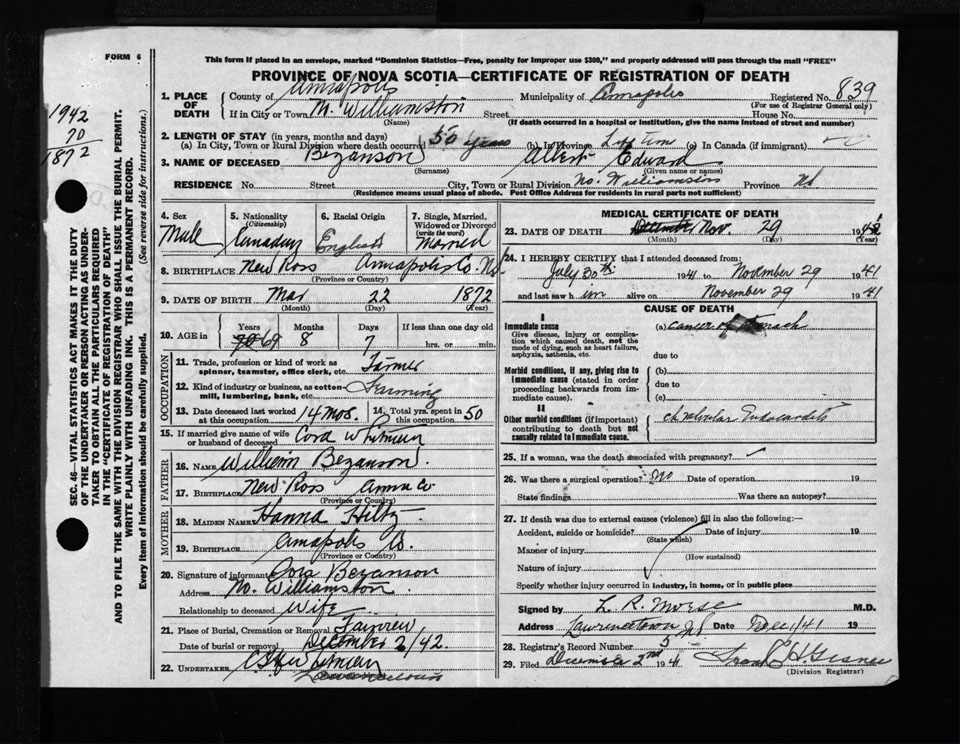 FORM 6
This form if placed in an envelope, marked "Dominion Statistics—Free, penalty for improper use $300," and properly addressed will pass through the mail "FREE"
PROVINCE OF NOVA SCOTIA—CERTIFICATE OF REGISTRATION OF DEATH
1942
70
1872
SEC. 46—VITAL STATISTICS ACT MAKES IT THE DUTY
OF THE UNDERTAKER OR PERSON ACTING AS UNDER-
TAKER TO OBTAIN ALL THE PARTICULARS REQUIRED
IN THE "CERTIFICATE OF REGISTRATION OF DEATH"
AND TO FILE THE SAME WITH THE DIVISION REGISTRAR WHO SHALL ISSUE THE BURIAL PERMIT.
WRITE PLAINLY WITH UNFADING INK. THIS IS A PERMANENT RECORD.
Every item of information should be carefully supplied. (See reverse side for instructions.)
1. PLACE OF DEATH
County of Annapolis Municipality of Annapolis Registered No. 839
(For use of Registrar General only)
If in City or Town N. Williamston Street House No.
(Name) (If death occurred in a hospital or institution, give the name instead of street and number)
2. LENGTH OF STAY (in years, months and days)
(a) In City, Town or Rural Division where death occurred 50 years (b) In Province Life time (c) In Canada (if immigrant)
3. NAME OF DECEASED Bezanson Albert Edward
(Surname) (Given name or names)
RESIDENCE No. Street City, Town or Rural Division No. Williamston Province NS
(Residence means usual place of abode. Post Office Address for residents in rural parts not sufficient)
4. Sex Male
5. Nationality (Citizenship) Canadian
6. Racial Origin English
7. Single, Married, Widowed or Divorced (write the word) Married
8. BIRTHPLACE New Ross Annapolis Co. NS
(Province or Country)
9. DATE OF BIRTH Mar 22 1872
(Month) (Day) (Year)
10. AGE in Years 70 69 Months 8 Days 7 If less than one day old hrs. or min.
OCCUPATION
11. Trade, profession or kind of work as spinner, teamster, office clerk, etc. Farmer
12. Kind of industry or business, as cotton-mill, lumbering, bank, etc. Farming
13. Date deceased last worked at this occupation 14 Mos.
14. Total yrs. spent in this occupation 50
15. If married give name of wife or husband of deceased Cora Whitman
FATHER
16. NAME William Bezanson.
17. Birthplace New Ross Anna Co
(Province or Country)
MOTHER
18. MAIDEN NAME Hanna Hiltz
19. BIRTHPLACE Annapolis Co.
(Province or Country)
20. Signature of informant Cora Bezanson
Address No. Williamston
Relationship to deceased Wife
21. Place of Burial, Cremation or Removal Fairview
Date of burial or removal December 2/42.
22. UNDERTAKER
MEDICAL CERTIFICATE OF DEATH
23. DATE OF DEATH December Nov. 29 1941
(Month) (Day) (Year)
24. I HEREBY CERTIFY that I attended deceased from:
July 30th 1941 to November 29 1941
and last saw h im alive on November 29 1941
CAUSE OF DEATH
I
Immediate cause (a) cancer of stomach
Give disease, injury or complication which caused death, not the mode of dying, such as heart failure, asphyxia, asthenia, etc.
due to
Morbid conditions, if any, giving rise to immediate cause (stated in order proceeding backwards from immediate cause).
(b)
due to
(c)
II
Other morbid conditions (if important) contributing to death but not causally related to immediate cause.
ch valvular Endocarditis
25. If a woman, was the death associated with pregnancy?
26. Was there a surgical operation? no Date of operation 19
State findings Was there an autopsy?
27. If death was due to external causes (violence) fill in also the following:—
Accident, suicide or homicide? Date of injury 19
(State which)
Manner of injury
(How sustained)
Nature of injury
Specify whether injury occurred in industry, in home, or in public place
Signed by L. R. Morse M.D.
Address Lawrencetown NS Date Dec 1/41 19
28. Registrar's Record Number 5
29. Filed December 2nd 1941
(Division Registrar)